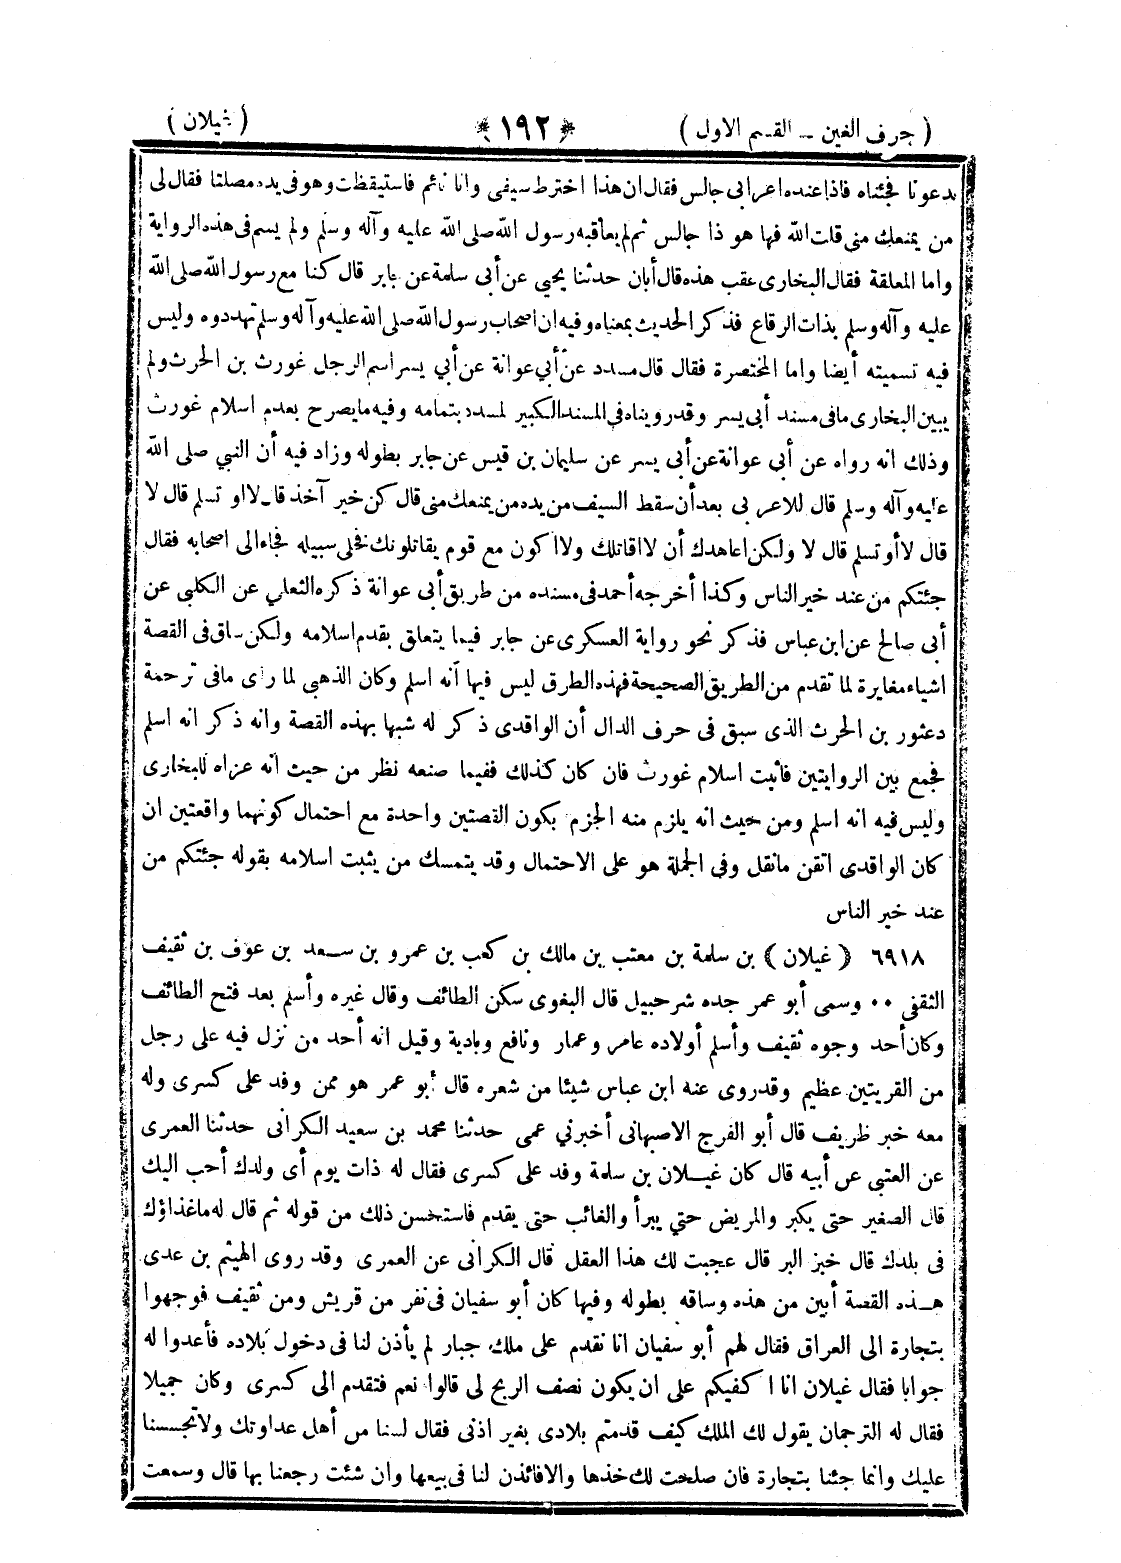 ( حرف الغين – القسم الاول ) * ١٩٢ * ( غيلان )
يدعونا فجئناه فاذا عنده اعرابى جالس فقال ان هذا اخترط سيفى وانا نائم فاستيقظت وهو فى يده مصلتا فقال لى
من يمنعك منى قلت الله فها هو ذا جالس ثم لم يعاقبه رسول الله صلى الله عليه وآله وسلم ولم يسم فى هذه الرواية
واما المعلقة فقال البخارى عقب هذه قال أبان حدثنا يحيى عن أبى سلمة عن جابر قال كنا مع رسول الله صلى الله
عليه وآله وسلم بذات الرقاع فذكر الحديث بمعناه وفيه ان اصحاب رسول الله صلى الله عليه وآله وسلم تهددوه وليس
فيه تسميته أيضا واما المختصرة فقال قال مسدد عن أبي عوانة عن أبي يسر اسم الرجل غورث بن الحرث ولم
يبين البخارى ما فى مسند أبى يسر وقد رويناه في المسند الكبير لمسدد بتمامه وفيه ما يصرح بعدم اسلام غورث
وذلك انه رواه عن أبي عوانة عن أبى يسر عن سليمان بن قيس عن جابر بطوله وزاد فيه أن النبي صلى الله
عليه وآله وسلم قال للاعرابى بعد أن سقط السيف من يده من يمنعك منى قال كن خير آخذ قال لا او تسلم قال لا
قال لا أو تسلم قال لا ولكن اعاهدك أن لا اقاتلك ولا اكون مع قوم يقاتلونك فخلى سبيله فجاء الى اصحابه فقال
جئتكم من عند خير الناس وكذا أخرجه أحمد فى مسنده من طريق أبى عوانة ذكره الثعلبي عن الكلبى عن
أبى صالح عن ابن عباس فذكر نحو رواية العسكرى عن جابر فيما يتعلق بقدم اسلامه ولكن ساق فى القصة
اشياء مغايرة لما تقدم من الطريق الصحيحة فهذه الطرق ليس فيها أنه اسلم وكان الذهبى لما رأى ما فى ترجمة
دعثور بن الحرث الذى سبق فى حرف الدال أن الواقدى ذكر له شبها بهذه القصة وانه ذكر انه اسلم
فجمع بين الروايتين فأثبت اسلام غورث فان كان كذلك ففيما صنعه نظر من حيث انه عزاه للبخارى
وليس فيه انه اسلم ومن حيث انه يلزم منه الجزم بكون القصتين واحدة مع احتمال كونهما واقعتين ان
كان الواقدى اتقن ما نقل وفى الجملة هو على الاحتمال وقد يتمسك من يثبت اسلامه بقوله جئتكم من
عند خير الناس
٦٩١٨ ( غيلان ) بن سلمة بن معتب بن مالك بن كعب بن عمرو بن سعد بن عوف بن ثقيف
الثقفى ٠٠ وسمى أبو عمر جده شرحبيل قال البغوى سكن الطائف وقال غيره وأسلم بعد فتح الطائف
وكان أحد وجوه ثقيف وأسلم أولاده عامر وعمار ونافع وبادية وقيل انه أحد من نزل فيه على رجل
من القريتين عظيم وقد روى عنه ابن عباس شيئا من شعره قال أبو عمر هو ممن وفد على كسرى وله
معه خبر ظريف قال أبو الفرج الاصبهانى أخبرني عمى حدثنا محمد بن سعيد الكرانى حدثنا العمرى
عن العتبى عن أبيه قال كان غيلان بن سلمة وفد على كسرى فقال له ذات يوم أى ولدك أحب اليك
قال الصغير حتى يكبر والمريض حتي يبرأ والغائب حتى يقدم فاستحسن ذلك من قوله ثم قال له ما غذاؤك
فى بلدك قال خبز البر قال عجبت لك هذا العقل قال الكرانى عن العمرى وقد روى الهيثم بن عدى
هذه القصة أبين من هذه وساقه بطوله وفيها كان أبو سفيان فى نفر من قريش ومن ثقيف فوجهوا
بتجارة الى العراق فقال لهم أبو سفيان انا نقدم على ملك جبار لم يأذن لنا فى دخول بلاده فأعدوا له
جوابا فقال غيلان انا اكفيكم على ان يكون نصف الربح لى قالوا نعم فتقدم الى كسرى وكان جميلا
فقال له الترجمان يقول لك الملك كيف قدمتم بلادى بغير اذنى فقال لسنا من أهل عداوتك ولا تجسسنا
عليك وانما جئنا بتجارة فان صلحت لك خذها والا فائذن لنا فى بيعها وان شئت رجعنا بها قال وسمعت